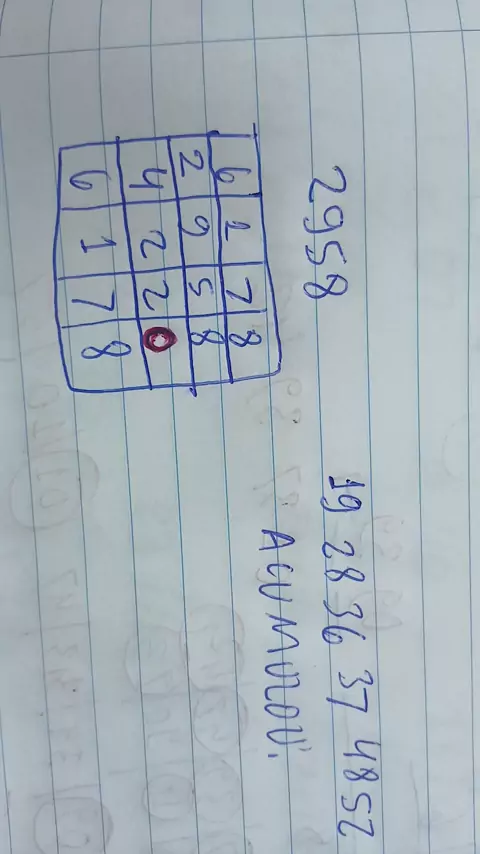 2958 19 28 36 37 48 52
ACUMULOU.
6 1 7 8
2 9 5 8
4 2 2 0
6 1 7 8